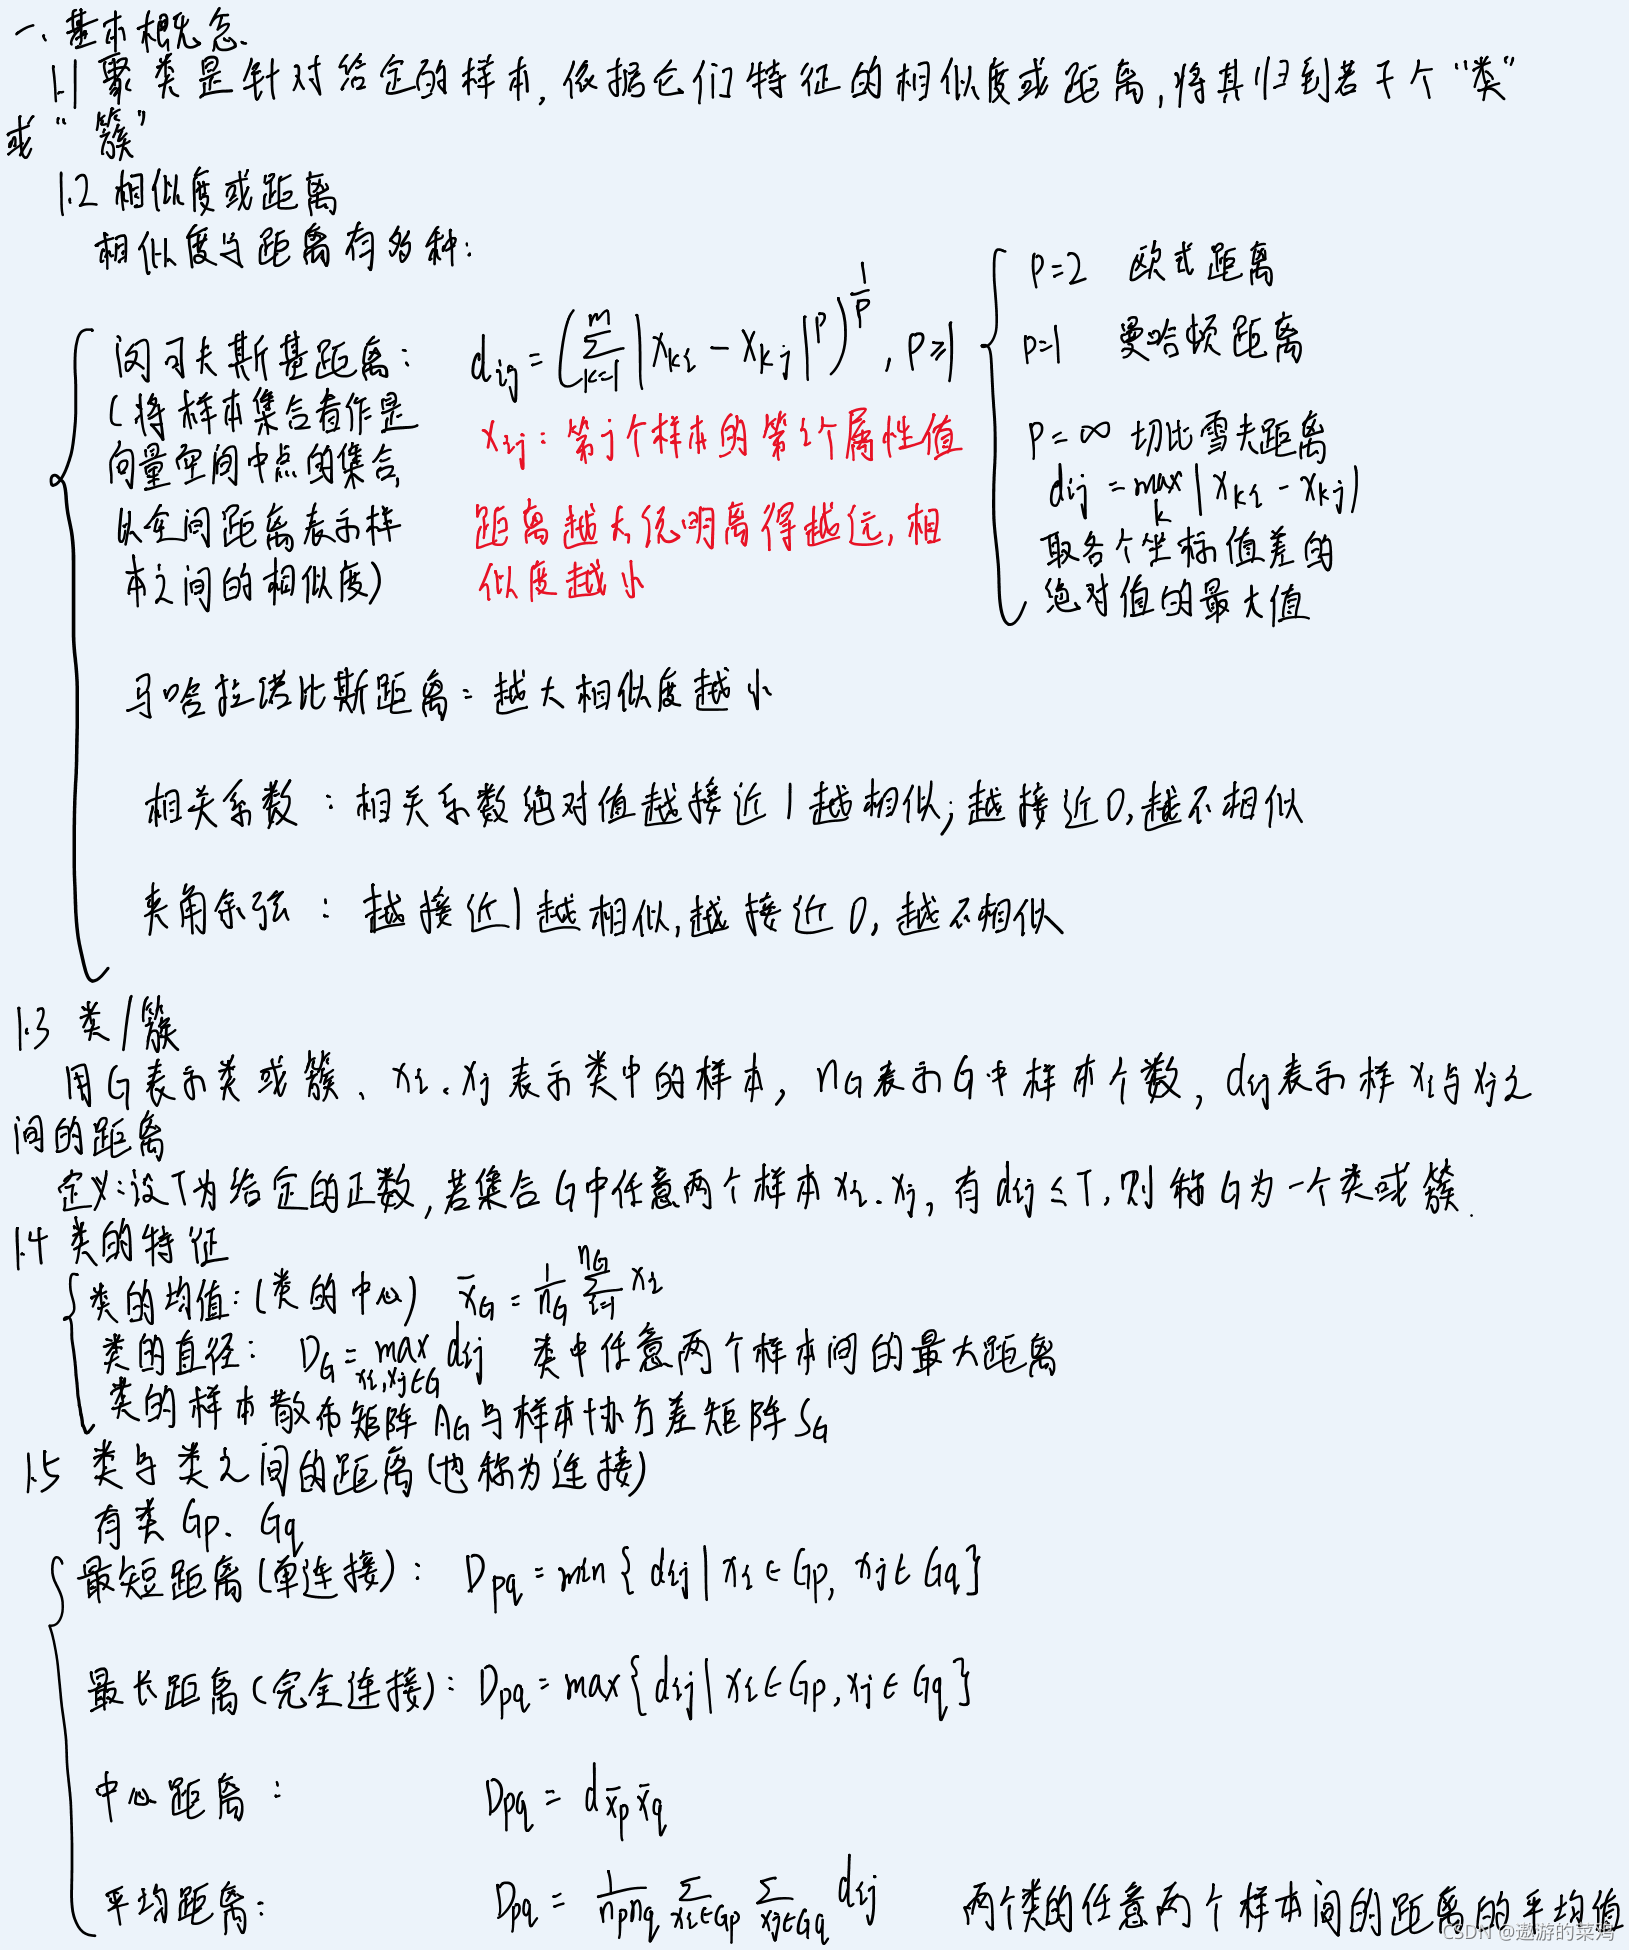 一、基本概念.
1.1 聚类是针对给定的样本, 依据它们特征的相似度或距离, 将其归到若干个“类”
或“簇”
1.2 相似度或距离
相似度与距离有多种:
闵可夫斯基距离: d_{ij} = (\sum_{k=1}^{m} |x_{ki} - x_{kj}|^p)^{\frac{1}{p}}, p≥1
(将样本集合看作是
向量空间中点的集合,
以空间距离表示样
本之间的相似度)
x_{ij}: 第j个样本的第i个属性值
距离越大说明离得越远, 相
似度越小
p=2 欧式距离
p=1 曼哈顿距离
p=∞ 切比雪夫距离
d_{ij} = \max_k |x_{ki} - x_{kj}|
取各个坐标值差的
绝对值的最大值
马哈拉诺比斯距离: 越大相似度越小
相关系数: 相关系数绝对值越接近1越相似; 越接近0, 越不相似
夹角余弦: 越接近1越相似, 越接近0, 越不相似
1.3 类/簇
用G表示类或簇、x_i、x_j表示类中的样本, n_G表示G中样本个数, d_{ij}表示样x_i与x_j之
间的距离
定义: 设T为给定的正数, 若集合G中任意两个样本x_i、x_j, 有d_{ij}≤T, 则称G为一个类或簇.
1.4 类的特征
类的均值: (类的中心) \bar{x}_G = \frac{1}{n_G} \sum_{i=1}^{n_G} x_i
类的直径: D_G = \max_{x_i, x_j∈G} d_{ij} 类中任意两个样本间的最大距离
类的样本散布矩阵A_G与样本协方差矩阵S_G
1.5 类与类之间的距离(也称为连接)
有类G_p、G_q
最短距离(单连接): D_{pq} = min{d_{ij}|x_i∈G_p, x_j∈G_q}
最长距离(完全连接): D_{pq} = max{d_{ij}|x_i∈G_p, x_j∈G_q}
中心距离: D_{pq} = d_{\bar{x}_p \bar{x}_q}
平均距离: D_{pq} = \frac{1}{n_p n_q} \sum_{x_i∈G_p} \sum_{x_j∈G_q} d_{ij} 两个类的任意两个样本间的距离的平均值
CSDN @遨游的菜鸡